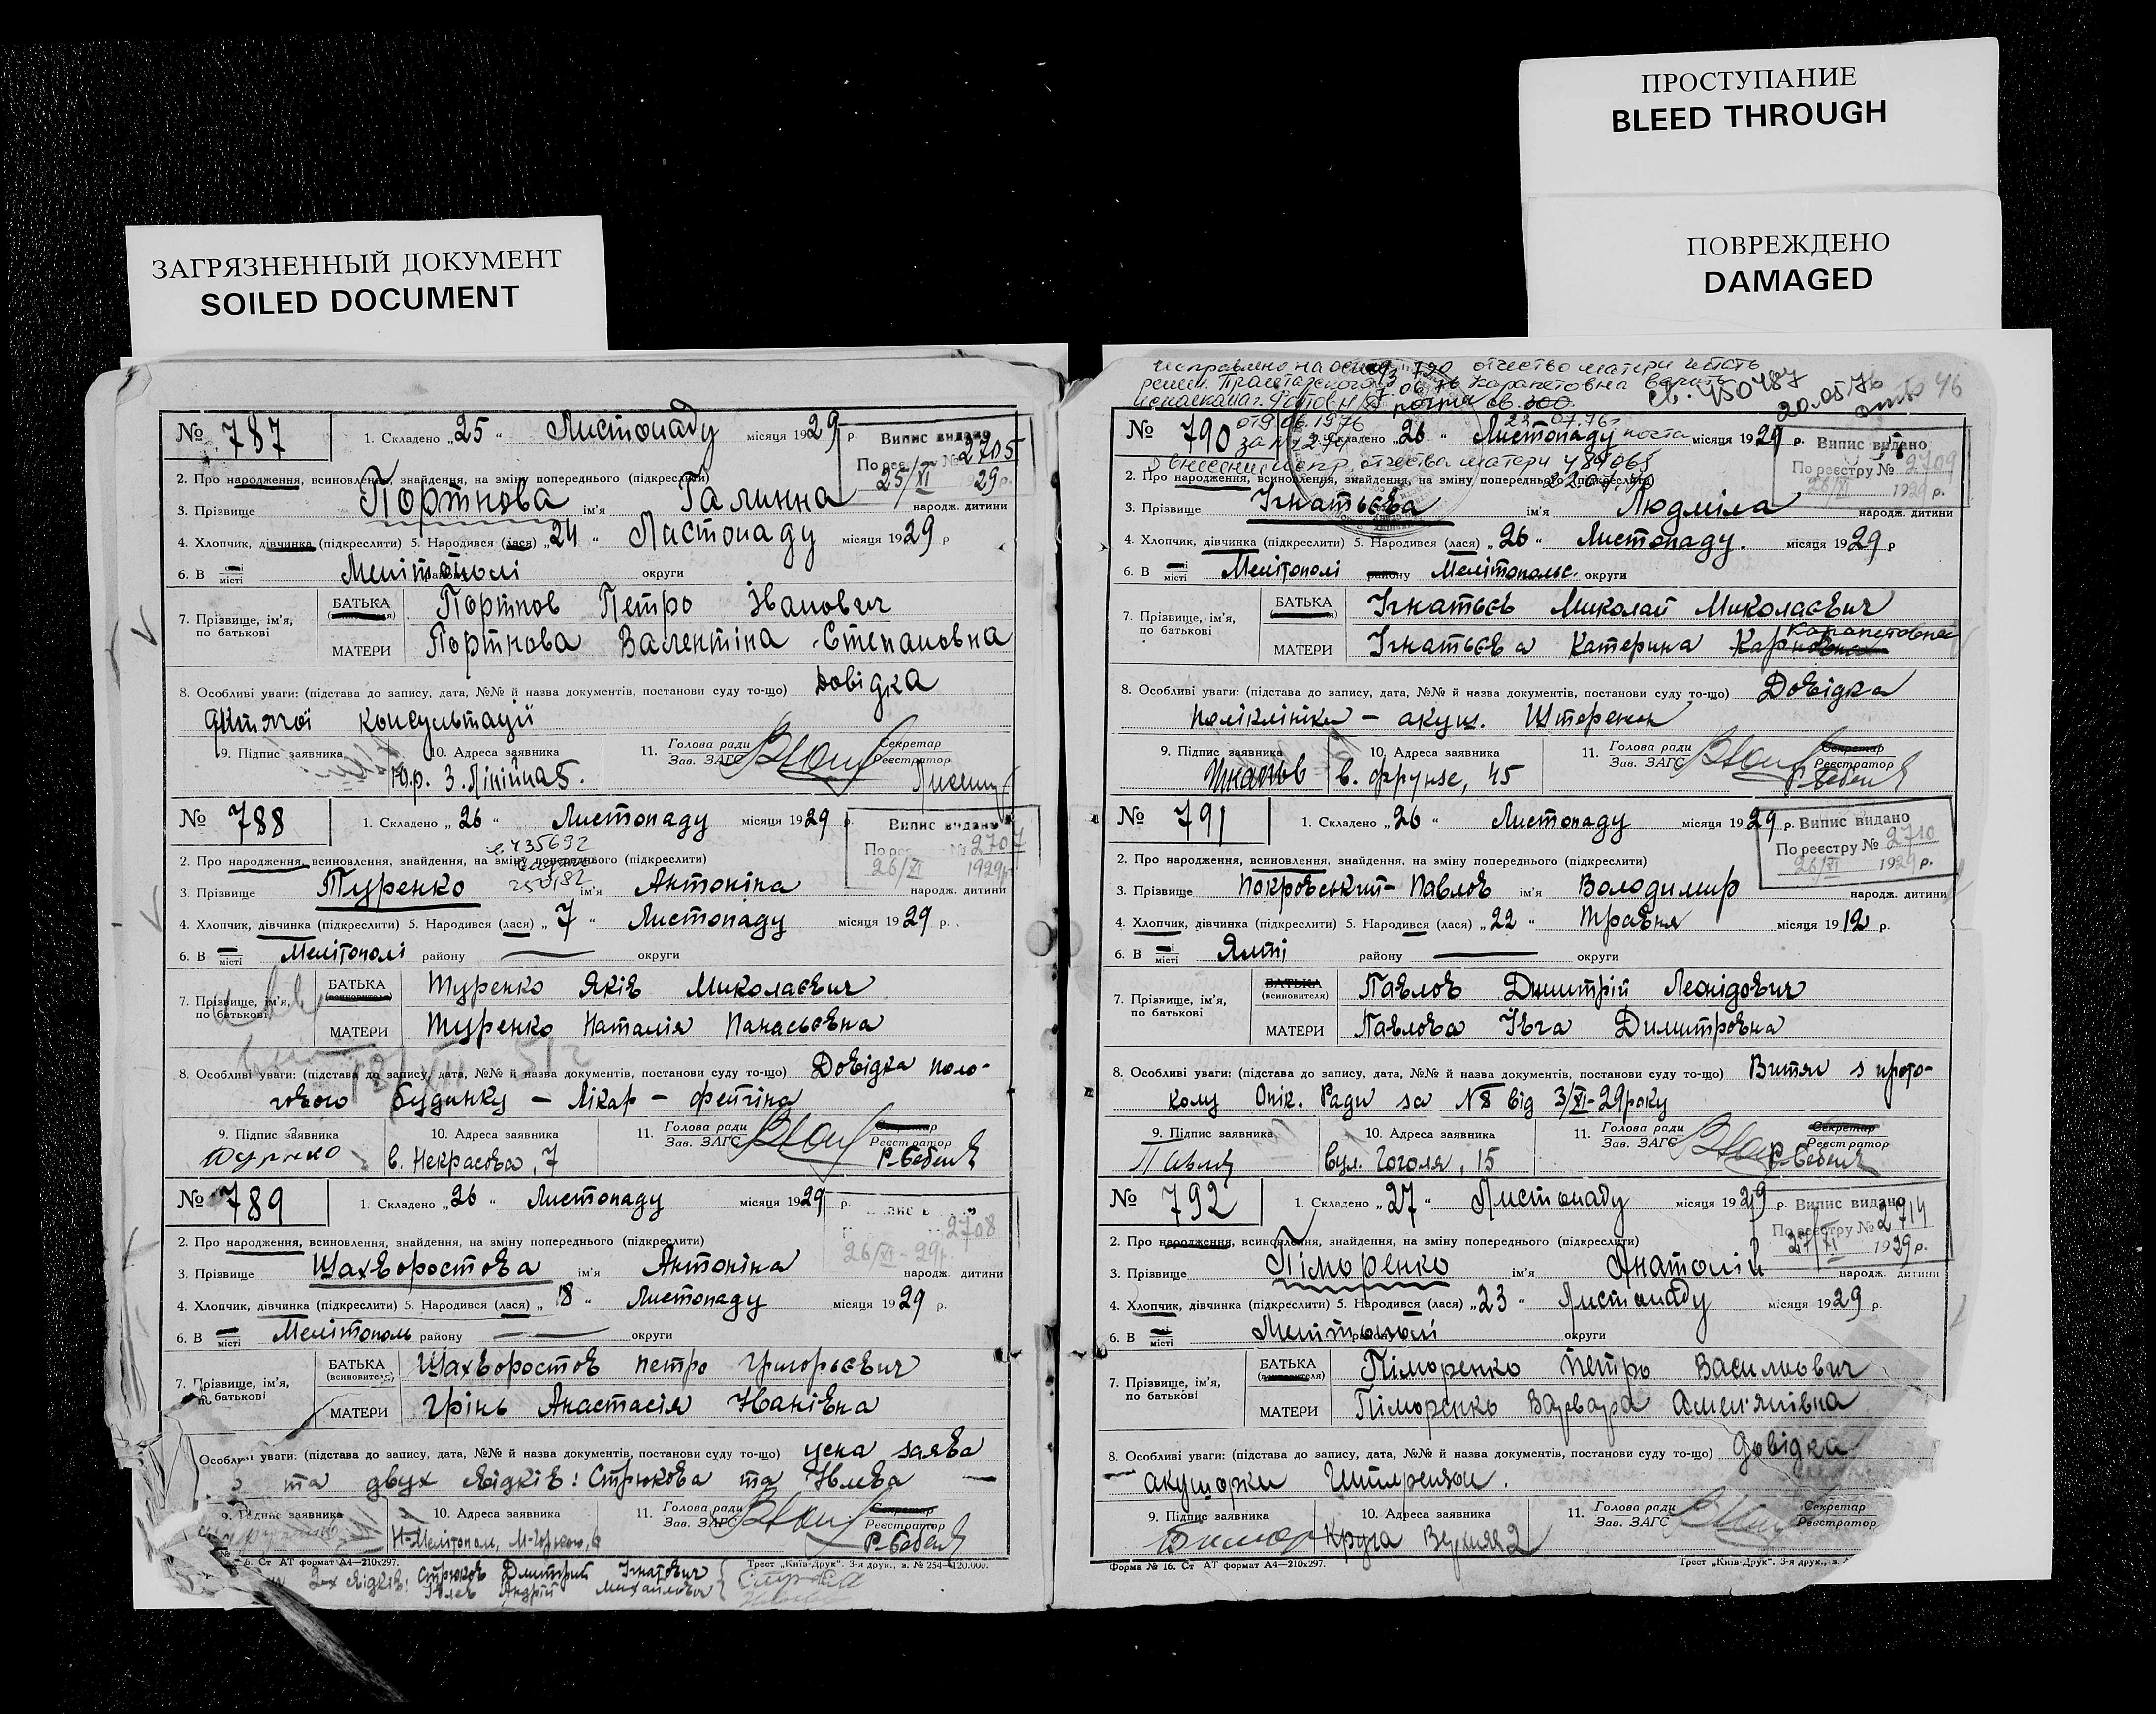 ЗАГРЯЗНЕННЫЙ ДОКУМЕНТ
SOILED DOCUMENT
ПРОСТУПАНИЕ
BLEED THROUGH
ПОВРЕЖДЕНО
DAMAGED
№ 787 1. Складено „25“ Листопаду місяця 1929 р.
Випис видано
№ 2705
25/XI 29 р.
2. Про народження, всиновлення, знайдення, на зміну попереднього (підкреслити)
3. Прізвище Портнова ім'я Галинна народж. дитини
4. Хлопчик, дівчинка (підкреслити) 5. Народився (лася) „24“ Листопаду місяця 1929 р
6. В місті Мелітополі округи
7. Прізвище, ім'я, по батькові БАТЬКА Портнов Петро Іванович
МАТЕРИ Портнова Валентіна Степановна
8. Особливі уваги: (підстава до запису, дата, №№ й назва документів, постанови суду то-що) Довідка
дитячої консультації
9. Підпис заявника 10. Адреса заявника 11. Голова ради Зав. ЗАГС Секретар Реєстратор
Ю.р. 3. Лінійна 5.
№ 788 1. Складено „26“ Листопаду місяця 1929 р.
Випис видано
№ 2707
26/XI 1929 р.
2. Про народження, всиновлення, знайдення, на зміну попереднього (підкреслити)
3. Прізвище Туренко ім'я Антоніна народж. дитини
4. Хлопчик, дівчинка (підкреслити) 5. Народився (лася) „7“ Листопаду місяця 1929 р.
6. В місті Мелітополі району — округи
7. Прізвище, ім'я, по батькові БАТЬКА (всиновителя) Туренко Яків Миколаєвич
МАТЕРИ Туренко Наталія Панасьєвна
8. Особливі уваги: (підстава до запису, дата, №№ й назва документів, постанови суду то-що) Довідка поло-
гового будинку — Лікар — Фейгіна
9. Підпис заявника 10. Адреса заявника 11. Голова ради Зав. ЗАГС Секретар Реєстратор
в. Некрасова, 7
№ 789 1. Складено „26“ Листопаду місяця 1929 р.
2708
26/XI - 29 р.
2. Про народження, всиновлення, знайдення, на зміну попереднього (підкреслити)
3. Прізвище Шахворостова ім'я Антоніна народж. дитини
4. Хлопчик, дівчинка (підкреслити) 5. Народився (лася) „18“ Листопаду місяця 1929 р.
6. В місті Мелітополь району — округи
7. Прізвище, ім'я, по батькові БАТЬКА (всиновителя) Шахворостов Петро Григорьєвич
МАТЕРИ Грінь Анастасія Іванівна
Особливі уваги: (підстава до запису, дата, №№ й назва документів, постанови суду то-що) усна заява
та двух свідків: Стрюкова та Ївлева —
9. Підпис заявника 10. Адреса заявника 11. Голова ради Зав. ЗАГС Секретар Реєстратор
Н-Мелітополь,
Ст АТ формат А4—210х297. Трест „Київ-Друк“. 3-я друк., з. № 254—120.000.
2-х свідків: Стрюков Дмитрий Ігнатович
Андрій Михайлович
отчество матери читать
Карапетовна
20.05.76
№ 790 Складено „26“ Листопаду місяця 1929 р.
Випис видано
По реєстру № 2709
26/XI 1929 р.
2. Про народження, всиновлення, знайдення, на зміну попереднього (підкреслити)
3. Прізвище Ігнатьєва ім'я Людміла народж. дитини
4. Хлопчик, дівчинка (підкреслити) 5. Народився (лася) „26“ Листопаду. місяця 1929 р
6. В місті Мелітополі району Мелітопольс. округи
7. Прізвище, ім'я, по батькові БАТЬКА Ігнатьєв Миколай Миколаєвич
Карапетовна
МАТЕРИ Ігнатьєва Катерина
8. Особливі уваги: (підстава до запису, дата, №№ й назва документів, постанови суду то-що) Довідка
поліклініки — акуш.
9. Підпис заявника 10. Адреса заявника 11. Голова ради Зав. ЗАГС Секретар Реєстратор
в. Фрунзе, 45
№ 791 1. Складено „26“ Листопаду місяця 1929 р.
Випис видано
По реєстру № 2710
26/XI 1929 р.
2. Про народження, всиновлення, знайдення, на зміну попереднього (підкреслити)
3. Прізвище Покровський-Павлов ім'я Володимир народж. дитини
4. Хлопчик, дівчинка (підкреслити) 5. Народився (лася) „22“ Травня місяця 1912 р.
6. В місті Ялті району — округи
7. Прізвище, ім'я, по батькові БАТЬКА (всиновителя) Павлов Дмитрій Леонідович
МАТЕРИ Павлова Ївга Димитровна
8. Особливі уваги: (підстава до запису, дата, №№ й назва документів, постанови суду то-що) Витяг з прото-
колу Опік. Ради за №8 від 3/XI-29 року
9. Підпис заявника 10. Адреса заявника 11. Голова ради Зав. ЗАГС Секретар Реєстратор
вул. Гоголя, 15
№ 792 1. Складено „27“ Листопаду місяця 1929 р.
Випис видано
По реєстру № 2714
27/XI 1929 р.
2. Про народження, всиновлення, знайдення, на зміну попереднього (підкреслити)
3. Прізвище Піморенко ім'я Анатолій народж. дитини
4. Хлопчик, дівчинка (підкреслити) 5. Народився (лася) „23“ Листопаду місяця 1929 р.
6. В місті Мелітополі округи
7. Прізвище, ім'я, по батькові БАТЬКА Піморенко Петро Васильович
МАТЕРИ Піморенко Варвара
8. Особливі уваги: (підстава до запису, дата, №№ й назва документів, постанови суду то-що) Довідка
— акушорки
9. Підпис заявника 10. Адреса заявника 11. Голова ради Зав. ЗАГС Секретар Реєстратор
Форма № 16. Ст АТ формат А4—210х297. Трест „Київ-Друк“. 3-я друк., з.